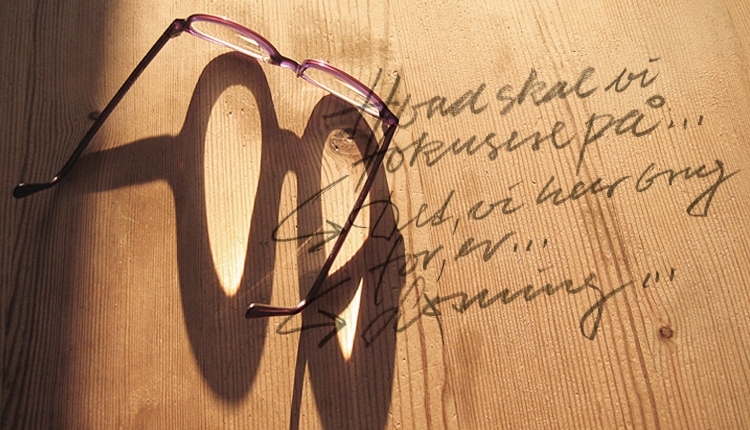 Hvad skal vi
fokusere på...
→ Det, vi har brug
for, er...
→ Løsning...